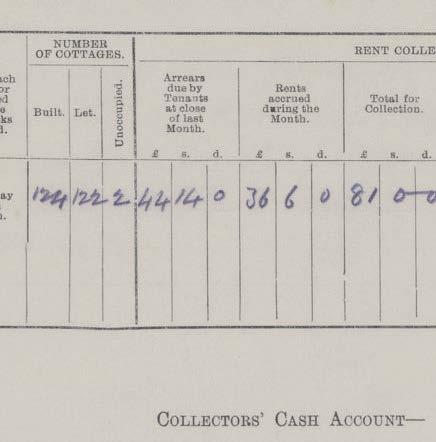 NUMBER
OF COTTAGES.
RENT COLLE
Built. Let. Unoccupied.
Arrears
due by
Tenants
at close
of last
Month.
Rents
accrued
during the
Month.
Total for
Collection.
£ s. d. £ s. d. £ s. d.
124 122 2 44 14 0 36 6 0 81 0 0
COLLECTORS' CASH ACCOUNT—